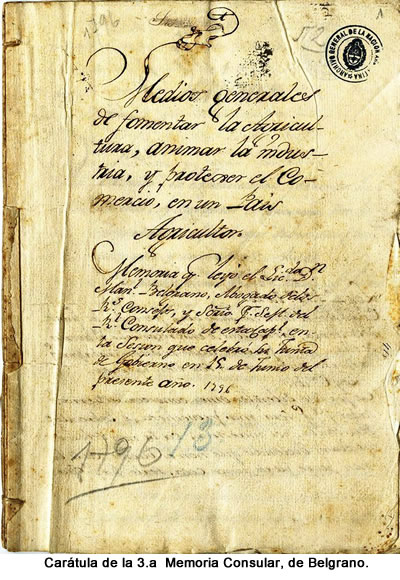 1796
52
1
ARCHIVO GENERAL DE LA NACION
Medios generales
de fomentar la Agricul-
tura, animar la indus-
tria, y proteger el Co-
mercio, en un Pais
Agricultor.
Memoria q. leyó el Lic.do Dn
Man.l Belgrano, Abogado de los
R.s Consejos, y Srio. del
R.l Consulado de esta Cap.l en
la Sesion que celebró su Junta
de Gobierno en de Junio del
presente año. 1796
1796
13
Carátula de la 3.a Memoria Consular, de Belgrano.